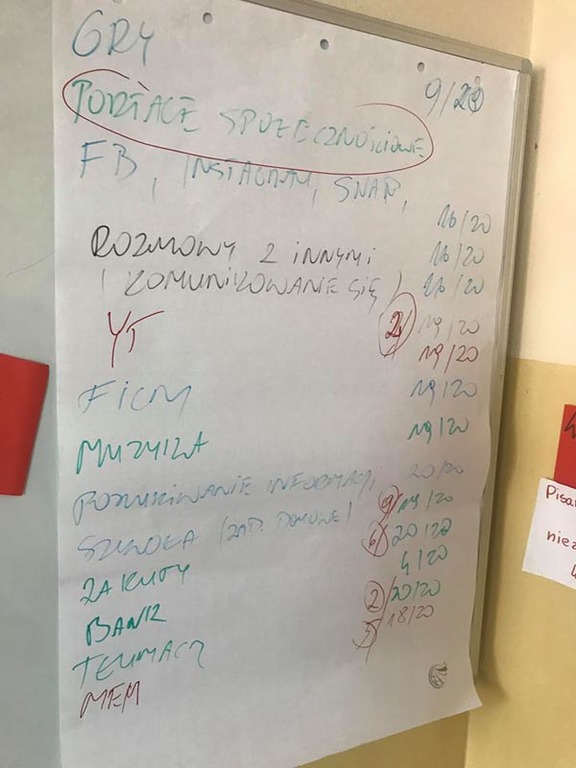 GRY 9/20
PORTALE SPOŁECZNOŚCIOWE
FB, INSTAGRAM, SNAP,
16/20
ROZMOWY Z INNYMI 16/20
(KOMUNIKOWANIE SIĘ) 16/20
19/20
YT 19/20
FILM 19/20
MUZYKA 19/20
POSZUKIWANIE INFORMACJI 20/20
SZKOŁA (ZAD. DOMOWE) 9/19/20
ZAKUPY 6/20/20
BANK 4/20
TŁUMACZ 2/20/20
MEM 5 18/20
Pisa
niez